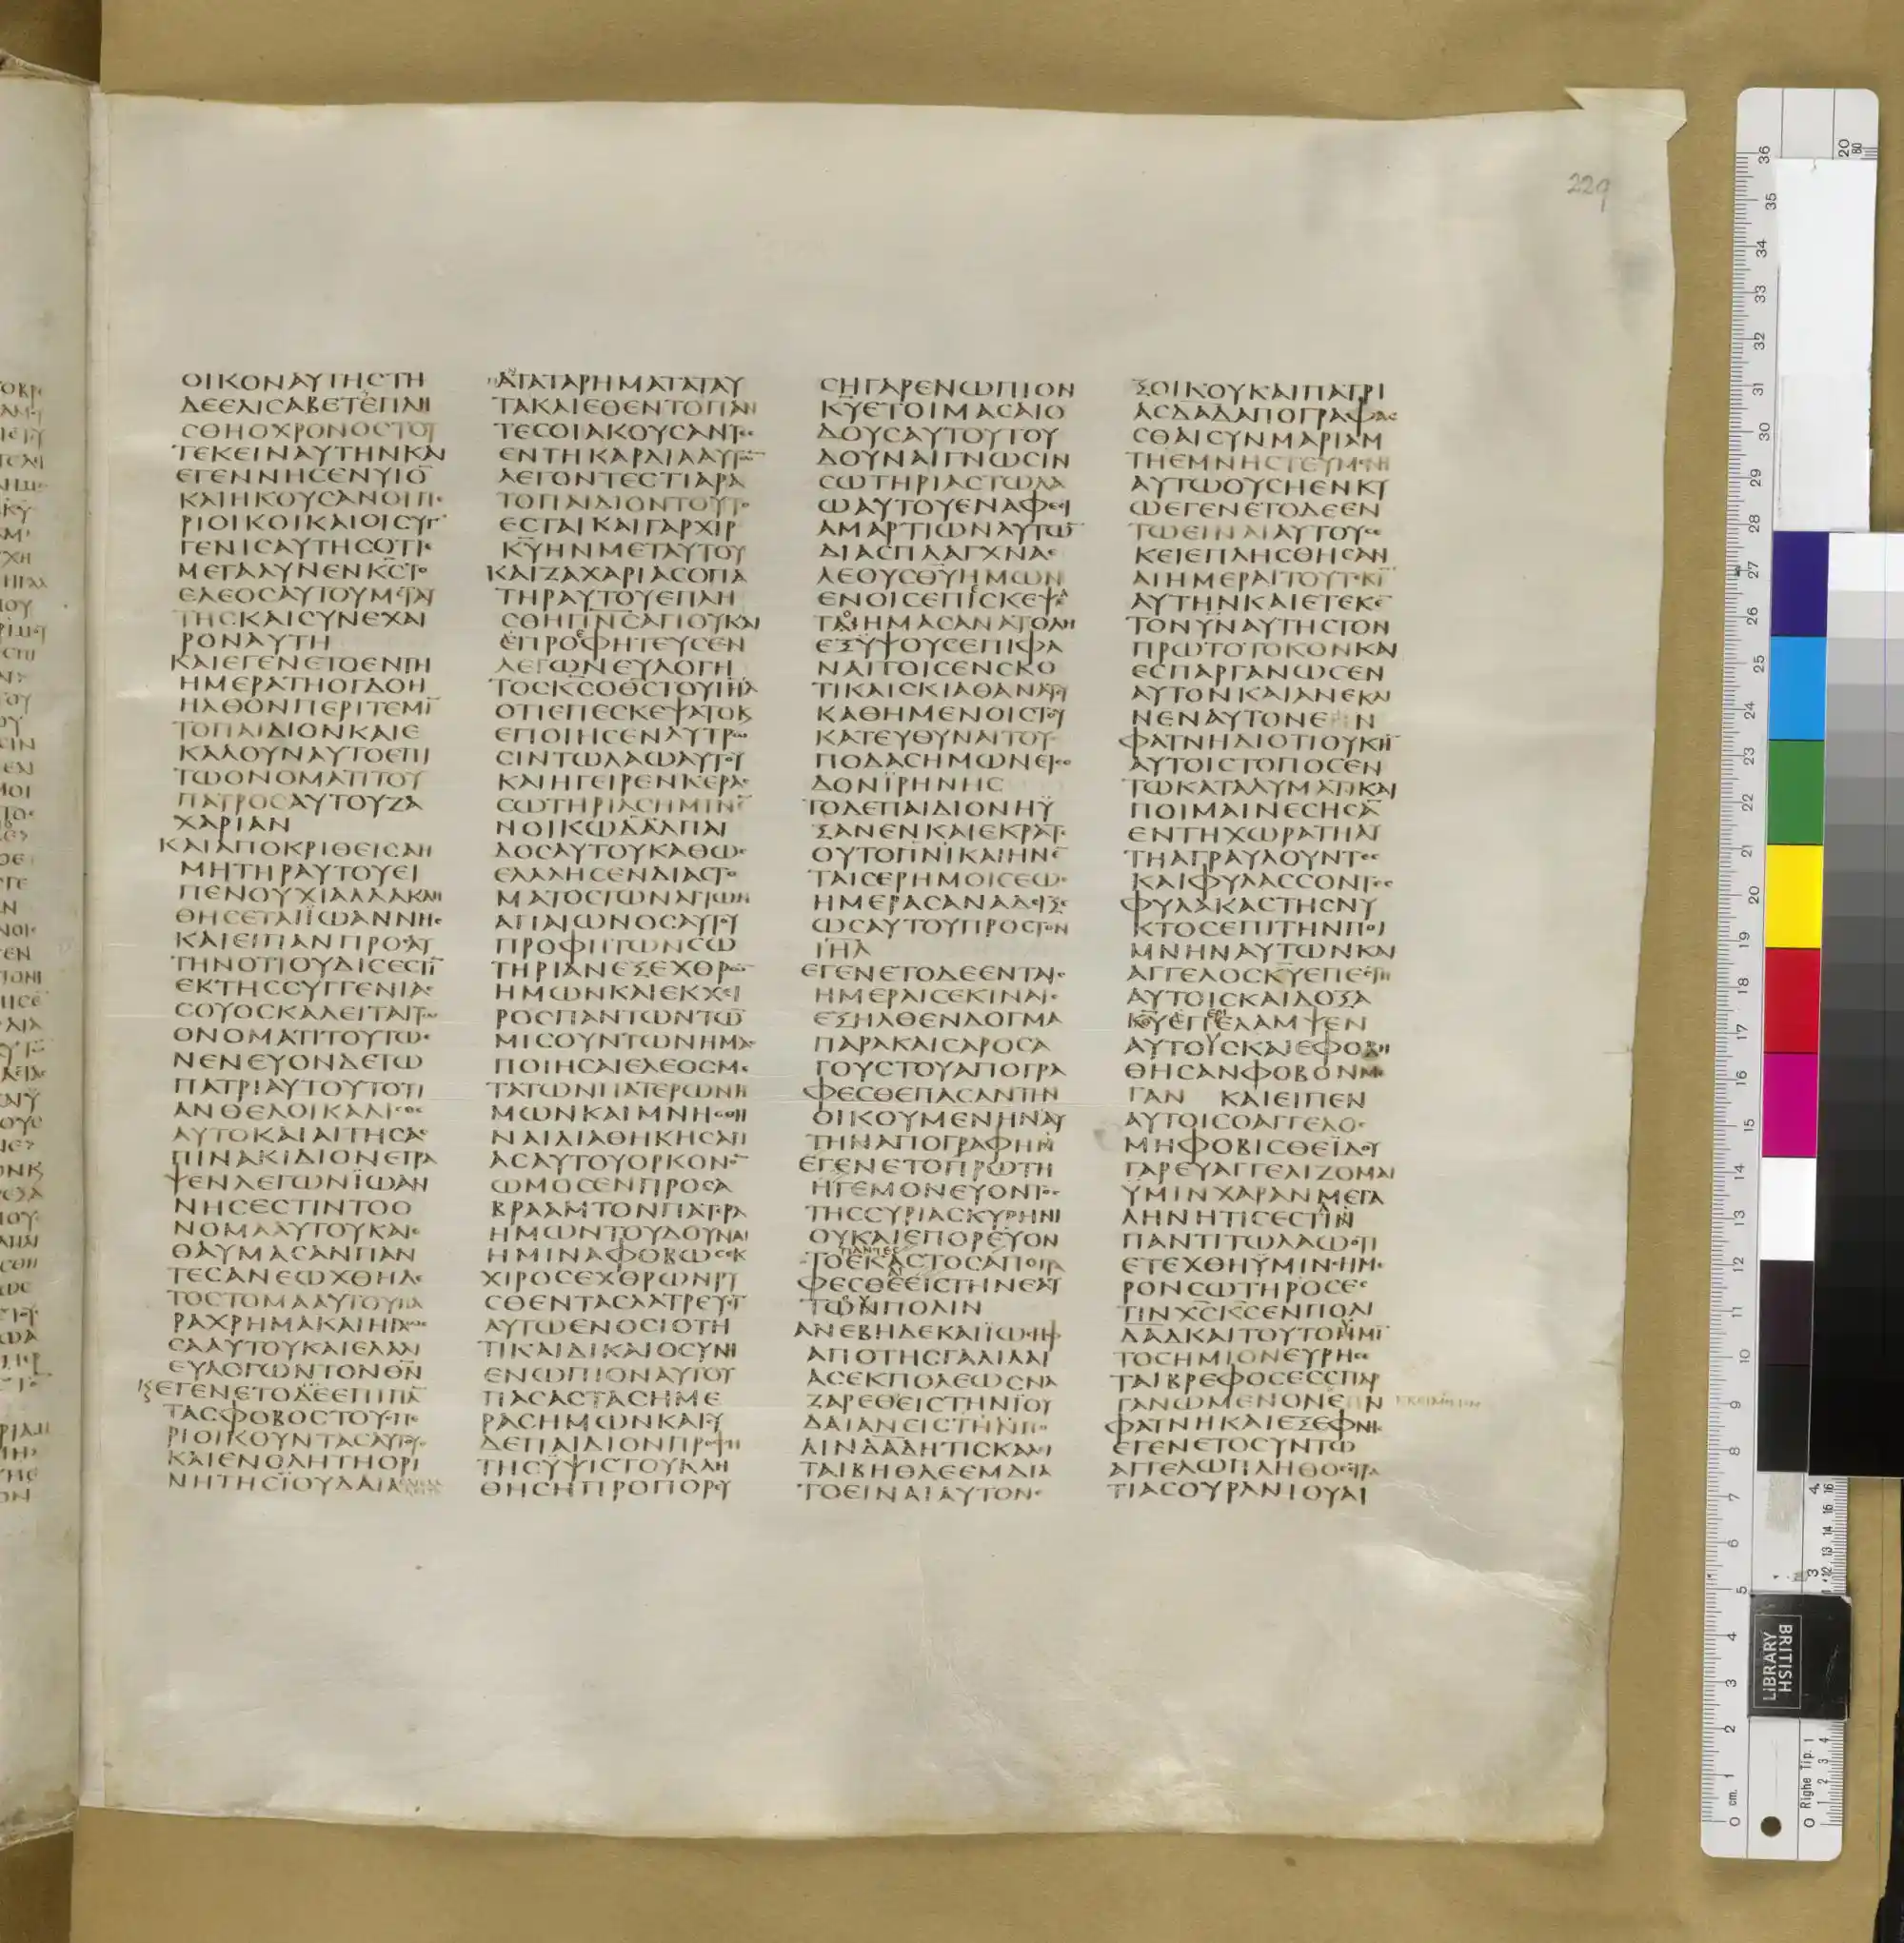 229
ΟΙΚΟΝΑΥΤΗϹΤΗ
ΔΕΕΛΙϹΑΒΕΤΕΠΛΗ
ϹΘΗΟΧΡΟΝΟϹΤΟΥ
ΤΕΚΕΙΝΑΥΤΗΝΚΑΙ
ΕΓΕΝΝΗϹΕΝΥΙΟ̅
ΚΑΙΗΚΟΥϹΑΝΟΙΠΕ
ΡΙΟΙΚΟΙΚΑΙΟΙϹΥΓ
ΓΕΝΙϹΑΥΤΗϹΟΤΙΕ
ΜΕΓΑΛΥΝΕΝΚ̅Ϲ̅ΤΟ
ΕΛΕΟϹΑΥΤΟΥΜΕΤΑΥ
ΤΗϹΚΑΙϹΥΝΕΧΑΙ
ΡΟΝΑΥΤΗ
ΚΑΙΕΓΕΝΕΤΟΕΝΤΗ
ΗΜΕΡΑΤΗΟΓΔΟΗ
ΗΛΘΟΝΠΕΡΙΤΕΜΙ̅
ΤΟΠΑΙΔΙΟΝΚΑΙΕ
ΚΑΛΟΥΝΑΥΤΟΕΠΙ
ΤΩΟΝΟΜΑΤΙΤΟΥ
ΠΑΤΡΟϹΑΥΤΟΥΖΑ
ΧΑΡΙΑΝ
ΚΑΙΑΠΟΚΡΙΘΕΙϹΑΗ
ΜΗΤΗΡΑΥΤΟΥΕΙ
ΠΕΝΟΥΧΙΑΛΛΑΚΛΗ
ΘΗϹΕΤΑΙΪΩΑΝΝΗϹ
ΚΑΙΕΙΠΑΝΠΡΟϹΑΥ
ΤΗΝΟΤΙΟΥΔΙϹΕϹΤΙ̅
ΕΚΤΗϹϹΥΓΓΕΝΙΑϹ
ϹΟΥΟϹΚΑΛΕΙΤΑΙΤΩ
ΟΝΟΜΑΤΙΤΟΥΤΩΕ
ΝΕΝΕΥΟΝΔΕΤΩ
ΠΑΤΡΙΑΥΤΟΥΤΟΤΙ
ΑΝΘΕΛΟΙΚΑΛΙϹΘΕ
ΑΥΤΟΚΑΙΑΙΤΗϹΑϹ
ΠΙΝΑΚΙΔΙΟΝΕΓΡΑ
ΨΕΝΛΕΓΩΝΪΩΑΝ
ΝΗϹΕϹΤΙΝΤΟΟ
ΝΟΜΑΑΥΤΟΥΚΑΙΕ
ΘΑΥΜΑϹΑΝΠΑΝ
ΤΕϹΑΝΕΩΧΘΗΔΕ
ΤΟϹΤΟΜΑΑΥΤΟΥΠΑ
ΡΑΧΡΗΜΑΚΑΙΗΓΛΩϹ
ϹΑΑΥΤΟΥΚΑΙΕΛΑΛΙ
ΕΥΛΟΓΩΝΤΟΝΘ̅Ν̅
ΕΓΕΝΕΤΟΔΕΕΠΙΠΑ̅
ΤΑϹΦΟΒΟϹΤΟΥϹΠΕ
ΡΙΟΙΚΟΥΝΤΑϹΑΥΤΟΥϹ
ΚΑΙΕΝΟΛΗΤΗΟΡΙ
ΝΗΤΗϹΪΟΥΔΑΙΑϹ
ΤΑΤΑΡΗΜΑΤΑΤΑΥ
ΤΑΚΑΙΕΘΕΝΤΟΠΑΝ
ΤΕϹΟΙΑΚΟΥϹΑΝΤΕϹ
ΕΝΤΗΚΑΡΔΙΑΑΥΤΩ̅
ΛΕΓΟΝΤΕϹΤΙΑΡΑ
ΤΟΠΑΙΔΙΟΝΤΟΥΤΟ
ΕϹΤΑΙΚΑΙΓΑΡΧΙΡ
Κ̅Υ̅ΗΝΜΕΤΑΥΤΟΥ
ΚΑΙΖΑΧΑΡΙΑϹΟΠΑ
ΤΗΡΑΥΤΟΥΕΠΛΗ
ϹΘΗΠ̅Ν̅ϹΑΓΙΟΥΚΑΙ
ΕΠΡΟΕΦΗΤΕΥϹΕΝ
ΛΕΓΩΝΕΥΛΟΓΗ
ΤΟϹΚ̅Ϲ̅ΟΘ̅Ϲ̅ΤΟΥΙ̅Η̅Λ̅
ΟΤΙΕΠΕϹΚΕΨΑΤΟΚ
ΕΠΟΙΗϹΕΝΛΥΤΡΩ
ϹΙΝΤΩΛΑΩΑΥΤΟΥ
ΚΑΙΗΓΕΙΡΕΝΚΕΡΑϹ
ϹΩΤΗΡΙΑϹΗΜΙΝΕ̅
ΝΟΙΚΩΔ̅Α̅Δ̅ΠΑΙ
ΔΟϹΑΥΤΟΥΚΑΘΩϹ
ΕΛΑΛΗϹΕΝΔΙΑϹΤΟ
ΜΑΤΟϹΤΩΝΑΓΙΩΝ
ΑΠΑΙΩΝΟϹΑΥΤΟΥ
ΠΡΟΦΗΤΩΝϹΩ
ΤΗΡΙΑΝΕΞΕΧΘΡΩ̅
ΗΜΩΝΚΑΙΕΚΧΕΙ
ΡΟϹΠΑΝΤΩΝΤΩ̅
ΜΙϹΟΥΝΤΩΝΗΜΑϹ
ΠΟΙΗϹΑΙΕΛΕΟϹΜΕ
ΤΑΤΩΝΠΑΤΕΡΩΝΗ
ΜΩΝΚΑΙΜΝΗϹΘΗ
ΝΑΙΔΙΑΘΗΚΗϹΑΓΙ
ΑϹΑΥΤΟΥΟΡΚΟΝΟ̅
ΩΜΟϹΕΝΠΡΟϹΑ
ΒΡΑΑΜΤΟΝΠΑΤΡΑ
ΗΜΩΝΤΟΥΔΟΥΝΑΙ
ΗΜΙΝΑΦΟΒΩϹΕΚ
ΧΙΡΟϹΕΧΘΡΩΝΡΥ
ϹΘΕΝΤΑϹΛΑΤΡΕΥΙ
ΑΥΤΩΕΝΟϹΙΟΤΗ
ΤΙΚΑΙΔΙΚΑΙΟϹΥΝΗ
ΕΝΩΠΙΟΝΑΥΤΟΥ
ΠΑϹΑϹΤΑϹΗΜΕ
ΡΑϹΗΜΩΝΚΑΙϹΥ
ΔΕΠΑΙΔΙΟΝΠΡΟΦΗ
ΤΗϹΥΨΙϹΤΟΥΚΛΗ
ΘΗϹΗΠΡΟΠΟΡΕΥ
ϹΗΓΑΡΕΝΩΠΙΟΝ
Κ̅Υ̅ΕΤΟΙΜΑϹΑΙΟ
ΔΟΥϹΑΥΤΟΥΤΟΥ
ΔΟΥΝΑΙΓΝΩϹΙΝ
ϹΩΤΗΡΙΑϹΤΩΛΑ
ΩΑΥΤΟΥΕΝΑΦΕϹΙ
ΑΜΑΡΤΙΩΝΑΥΤΩ̅
ΔΙΑϹΠΛΑΓΧΝΑΕ
ΛΕΟΥϹΘ̅Υ̅ΗΜΩΝ
ΕΝΟΙϹΕΠΙϹΚΕΨΕ
ΤΑΙΗΜΑϹΑΝΑΤΟΛΗ
ΕΞΥΨΟΥϹΕΠΙΦΑ
ΝΑΙΤΟΙϹΕΝϹΚΟ
ΤΙΚΑΙϹΚΙΑΘΑΝΑΤΟΥ
ΚΑΘΗΜΕΝΟΙϹΤΟΥ
ΚΑΤΕΥΘΥΝΑΙΤΟΥϹ
ΠΟΔΑϹΗΜΩΝΕΙϹΟ
ΔΟΝΪΡΗΝΗϹ
ΤΟΔΕΠΑΙΔΙΟΝΗΥ
ΞΑΝΕΝΚΑΙΕΚΡΑΤΕ
ΟΥΤΟΠ̅Ν̅ΙΚΑΙΗΝΕ̅
ΤΑΙϹΕΡΗΜΟΙϹΕΩϹ
ΗΜΕΡΑϹΑΝΑΔΙΞΕ
ΩϹΑΥΤΟΥΠΡΟϹΤΟΝ
Ι̅Η̅Λ̅
ΕΓΕΝΕΤΟΔΕΕΝΤΑΙϹ
ΗΜΕΡΑΙϹΕΚΙΝΑΙϹ
ΕΞΗΛΘΕΝΔΟΓΜΑ
ΠΑΡΑΚΑΙϹΑΡΟϹΑ
ΓΟΥϹΤΟΥΑΠΟΓΡΑ
ΦΕϹΘΕΠΑϹΑΝΤΗΝ
ΟΙΚΟΥΜΕΝΗΝΑΥ
ΤΗΝΑΠΟΓΡΑΦΗΝ
ΕΓΕΝΕΤΟΠΡΩΤΗ
ΗΓΕΜΟΝΕΥΟΝΤΟϹ
ΤΗϹϹΥΡΙΑϹΚΥΡΗΝΙ
ΟΥΚΑΙΕΠΟΡΕΥΟΝ
ΠΑΝΤΕϹ
ΤΟΕΚΑϹΤΟϹΑΠΟΓΡΑ
ΦΕϹΘΕΕΙϹΤΗΝΕΑΥ
ΤΩΝΠΟΛΙΝ
ΑΝΕΒΗΔΕΚΑΙΪΩϹΗΦ
ΑΠΟΤΗϹΓΑΛΙΛΑΙ
ΑϹΕΚΠΟΛΕΩϹΝΑ
ΖΑΡΕΘΕΙϹΤΗΝΪΟΥ
ΔΑΙΑΝΕΙϹΤΗΝΠΟ
ΛΙΝΔ̅Α̅Δ̅ΗΤΙϹΚΑΛΙ
ΤΑΙΒΗΘΛΕΕΜΔΙΑ
ΤΟΕΙΝΑΙΑΥΤΟΝΕ
ΞΟΙΚΟΥΚΑΙΠΑΤΡΙ
ΑϹΔ̅Α̅Δ̅ΑΠΟΓΡΑΨΑ
ϹΘΑΙϹΥΝΜΑΡΙΑΜ
ΤΗΕΜΝΗϹΤΕΥΜΕΝΗ
ΑΥΤΩΟΥϹΗΕΝΚΥ
ΩΕΓΕΝΕΤΟΔΕΕΝ
ΤΩΕΙΝΑΙΑΥΤΟΥϹΕ
ΚΕΙΕΠΛΗϹΘΗϹΑΝ
ΑΙΗΜΕΡΑΙΤΟΥΤΕΚΙ̅
ΑΥΤΗΝΚΑΙΕΤΕΚΕ̅
ΤΟΝΥΝΑΥΤΗϹΤΟΝ
ΠΡΩΤΟΤΟΚΟΝΚΑΙ
ΕϹΠΑΡΓΑΝΩϹΕΝ
ΑΥΤΟΝΚΑΙΑΝΕΚΛΙ
ΝΕΝΑΥΤΟΝΕΝ
ΦΑΤΝΗΔΙΟΤΙΟΥΚΗ̅
ΑΥΤΟΙϹΤΟΠΟϹΕΝ
ΤΩΚΑΤΑΛΥΜΑΤΙΚΑΙ
ΠΟΙΜΑΙΝΕϹΗϹΑ̅
ΕΝΤΗΧΩΡΑΤΗΑΥ
ΤΗΑΓΡΑΥΛΟΥΝΤΕϹ
ΚΑΙΦΥΛΑϹϹΟΝΤΕϹ
ΦΥΛΑΚΑϹΤΗϹΝΥ
ΚΤΟϹΕΠΙΤΗΝΠΟΙ
ΜΝΗΝΑΥΤΩΝΚΑΙ
ΑΓΓΕΛΟϹΚ̅Υ̅ΕΠΕϹΤΗ
ΑΥΤΟΙϹΚΑΙΔΟΞΑ
Κ̅Υ̅ΕΠΕΛΑΜΨΕΝ
ΑΥΤΟΥϹΚΑΙΕΦΟΒΗ
ΘΗϹΑΝΦΟΒΟΝΜΕ
ΓΑΝ ΚΑΙΕΙΠΕΝ
ΑΥΤΟΙϹΟΑΓΓΕΛΟϹ
ΜΗΦΟΒΙϹΘΕΪΔΟΥ
ΓΑΡΕΥΑΓΓΕΛΙΖΟΜΑΙ
ΥΜΙΝΧΑΡΑΝΜΕΓΑ
ΛΗΝΗΤΙϹΕϹΤΙΝ
ΠΑΝΤΙΤΩΛΑΩΟΤΙ
ΕΤΕΧΘΗΥΜΙΝϹΗΜΕ
ΡΟΝϹΩΤΗΡΟϹΕϹ
ΤΙΝΧ̅Ϲ̅Κ̅Ϲ̅ΕΝΠΟΛΙ
Δ̅Α̅Δ̅ΚΑΙΤΟΥΤΟΥΜΙ̅
ΤΟϹΗΜΙΟΝΕΥΡΗϹΕ
ΤΑΙΒΡΕΦΟϹΕϹϹΠΑΡ
ΓΑΝΩΜΕΝΟΝΕΝ
ΦΑΤΝΗΚΑΙΕΞΕΦΝΗϹ
ΕΓΕΝΕΤΟϹΥΝΤΩ
ΑΓΓΕΛΩΠΛΗΘΟϹϹΤΡΑ
ΤΙΑϹΟΥΡΑΝΙΟΥΑΙ
BRITISH
LIBRARY
Righe Tip.
cm.